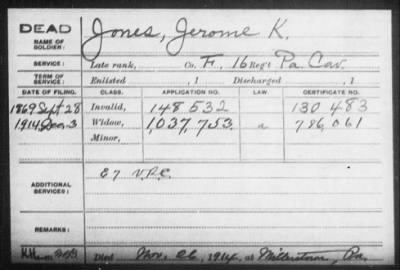 DEAD
NAME OF SOLDIER: Jones, Jerome K.
SERVICE: Late rank, Co. F, 16 Reg't Pa. Cav.
TERM OF SERVICE: Enlisted , 1 Discharged , 1
DATE OF FILING. CLASS. APPLICATION NO. LAW. CERTIFICATE NO.
1869 Sept 28 Invalid, 148 532 130 483
1914 3 Widow, 1,037,753. a 786 061
Minor,
ADDITIONAL SERVICES: E 7 V.R.C.
REMARKS:
Died Nov. 26, 1914, at Millerstown, Pa.